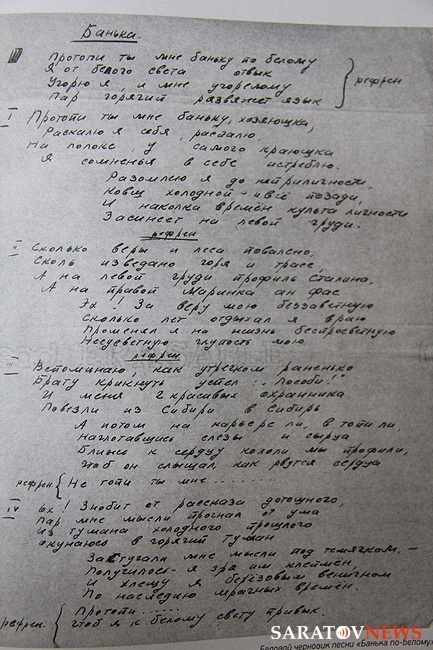 Банька.
III Протопи ты мне баньку по белому
Я от белого света отвык
Угорю я, и мне угорелому
Пар горячий развяжет язык
} рефрен
I Протопи ты мне баньку, хозяюшка,
Раскалю я себя, распалю
На полоке, у самого краюшка
Я сомненья в себе истреблю.
Разомлею я до неприличности,
Ковш холодной - и всё позади,
И наколка времён культа личности
Засинеет на левой груди.
рефрен
Сколько веры и леса повалено,
Сколь изведано горя и трасс
А на левой груди профиль Сталина,
А на правой Маринка ан фас
Эх! За веру мою беззаветную
Сколько лет отдыхал я в раю
Променял я на жизнь беспросветную
Несусветную глупость мою
рефрен
III Вспоминаю, как утречком раненько
Брату крикнуть успел: "Пособи!"
И меня 2 красивых охранника
Повезли из Сибири в Сибирь
А потом на карьере ли, в топи ли
Наглотавшись слезы и сырца
Ближе к сердцу кололи мы профили,
Чтоб он слышал, как рвутся сердца
рефрен { Не топи ты мне .......
IV Ох! Знобит от рассказа дотошного,
Пар мне мысли прогнал от ума
Из тумана холодного прошлого
Окунаюсь в горячий туман
Застучали мне мысли под темячком, -
Получилось - я зря им клеймён,
И хлещу я берёзовым веничком
По наследию мрачных времён.
рефрен { Протопи ......
Чтоб я к белому свету привык.
SARATOVNEWS
Беловой черновик песни «Банька по-белому»